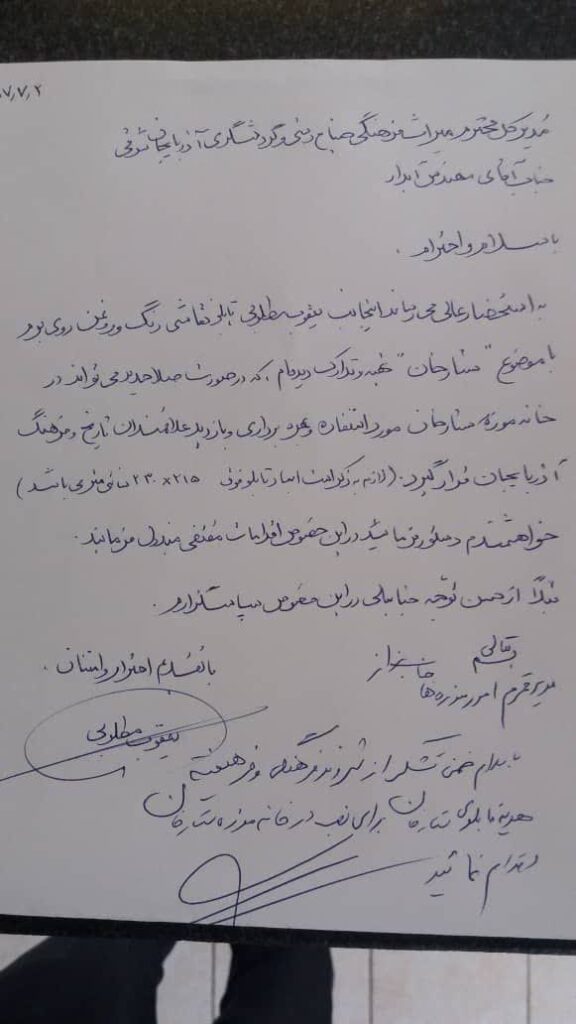 ۷٫۷٫۲
مدیر کل محترم میراث فرهنگی صنایع دستی و گردشگری آذربایجان شرقی
جناب آقای مهندس آبدار
با سلام و احترام .
به استحضار عالی می رساند اینجانب یعقوب مطلوبی تابلو نقاشی رنگ و روغن روی بوم
با موضوع " ستارخان " تهیه و تدارک دیده‌ام ، که در صورت صلاحدید می تواند در
خانه موزه ستارخان مورد استفاده و بهره برداری و بازدید علاقمندان تاریخ و فرهنگ
آذربایجان قرار گیرد . ( لازم به ذکر است ابعاد تابلو فوق ۲۱۵ × ۲۳۰ سانتی متری باشد )
خواهشمندم دستور فرمائید در این خصوص اقدامات مقتضی مبذول فرمایند .
قبلاً از حسن توجه جنابعالی در این خصوص سپاسگزارم .
با تقدیم احترام و امتنان .
یعقوب مطلوبی
بسمه تعالی
مدیر محترم امور موزه ها
با سلام ضمن تشکر از فرهنگی و فرهیخته
هدیه تابلوی ستارخان برای نصب در خانه موزه ستارخان
اقدام نمائید